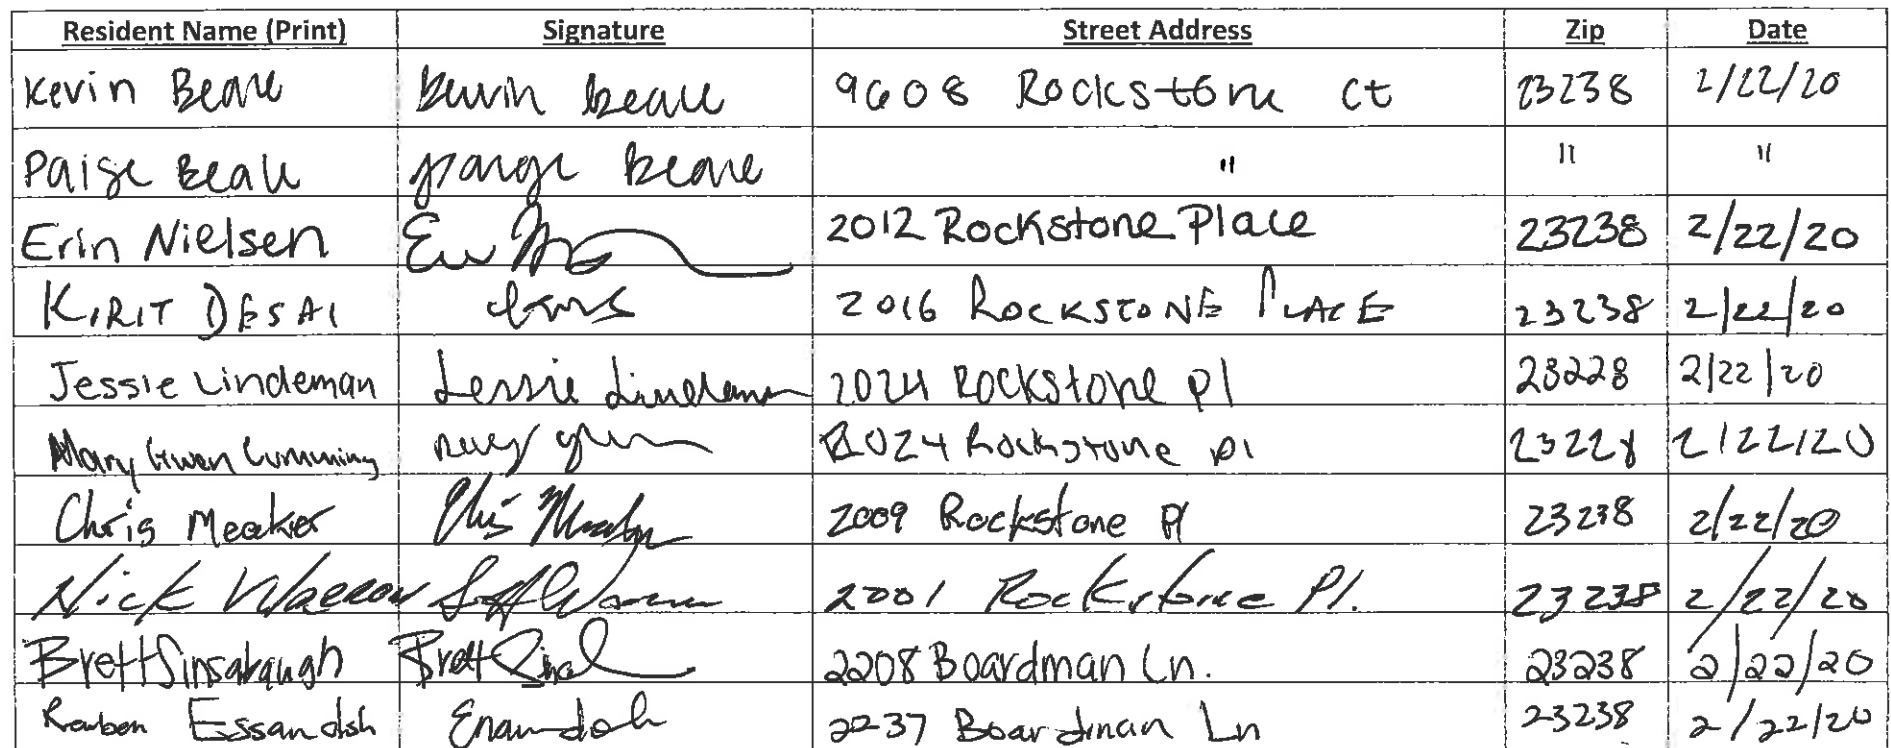 Resident Name (Print) Signature Street Address Zip Date
Kevin Beale Kevin Beale 9608 Rockstone Ct 23238 2/22/20
Paige Beale Paige Beale " " "
Erin Nielsen 2012 Rockstone Place 23238 2/22/20
KIRIT DESAI 2016 ROCKSTONE PLACE 23238 2/22/20
Jessie Lindeman Jessie Lindeman 2024 Rockstone Pl 23228 2/22/20
Mary Gwen Cumming 2024 Rockstone Pl 23228 2/22/20
Chris Meeker Chris Meeker 2009 Rockstone Pl 23238 2/22/20
Nick 2001 Rockstone Pl. 23238 2/22/20
Brett Sinsabaugh Brett 2208 Boardman Ln. 23238 2/22/20
Essandoh 2237 Boardman Ln 23238 2/22/20